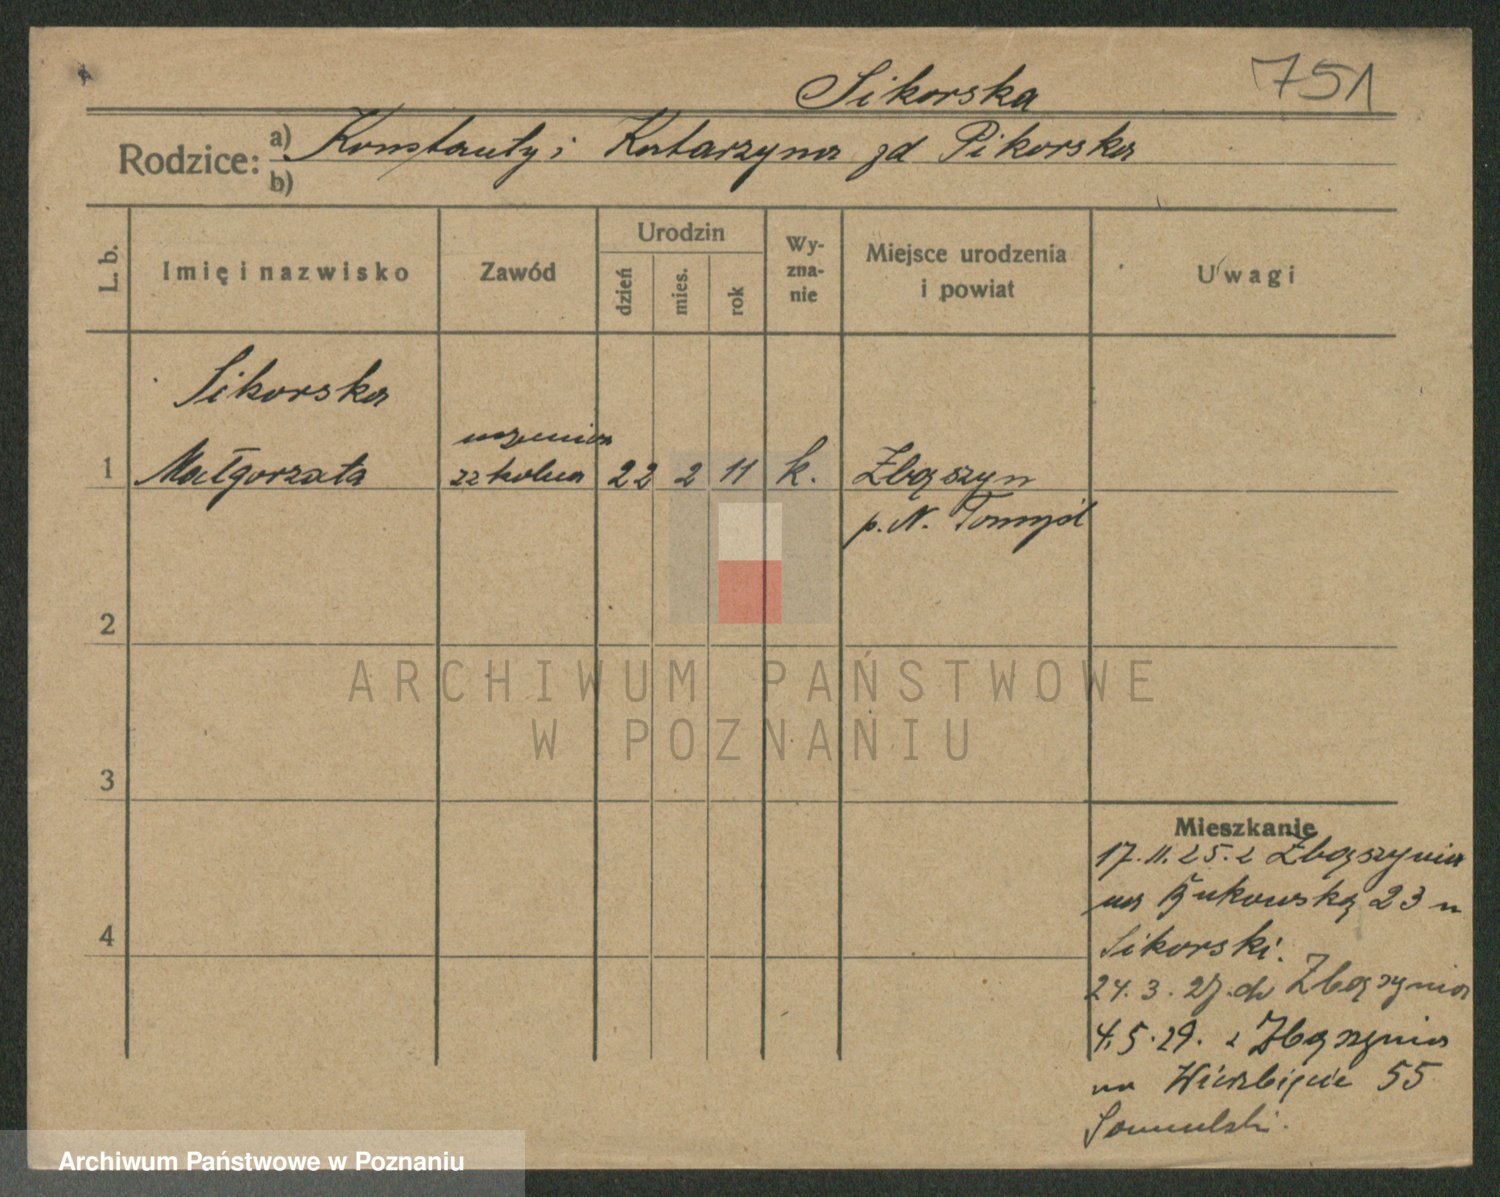 Sikorska 751
Rodzice: a) Konstanty i Katarzyna zd Pikorska
b)
L. b. Imię i nazwisko Zawód Urodzin dzień mies. rok Wy-zna-nie Miejsce urodzenia i powiat Uwagi
Sikorska
uczenica
1 Małgorzata szkolna 22 2 11 k. Zbąszyn
p. N. Tomyśl
2
ARCHIWUM PAŃSTWOWE
W POZNANIU
3
Mieszkanie
17.11.25. z Zbąszynia
na Bukowską 23 u
4
Sikorski.
24.3.27. do Zbąszynia
4.5.29. z Zbąszynia
na Wierzbięcie 55
Archiwum Państwowe w Poznaniu